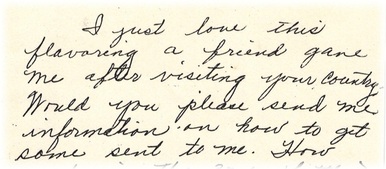 I just love this
flavoring a friend gave
me after visiting your country.
Would you please send me
information on how to get
some sent to me. How